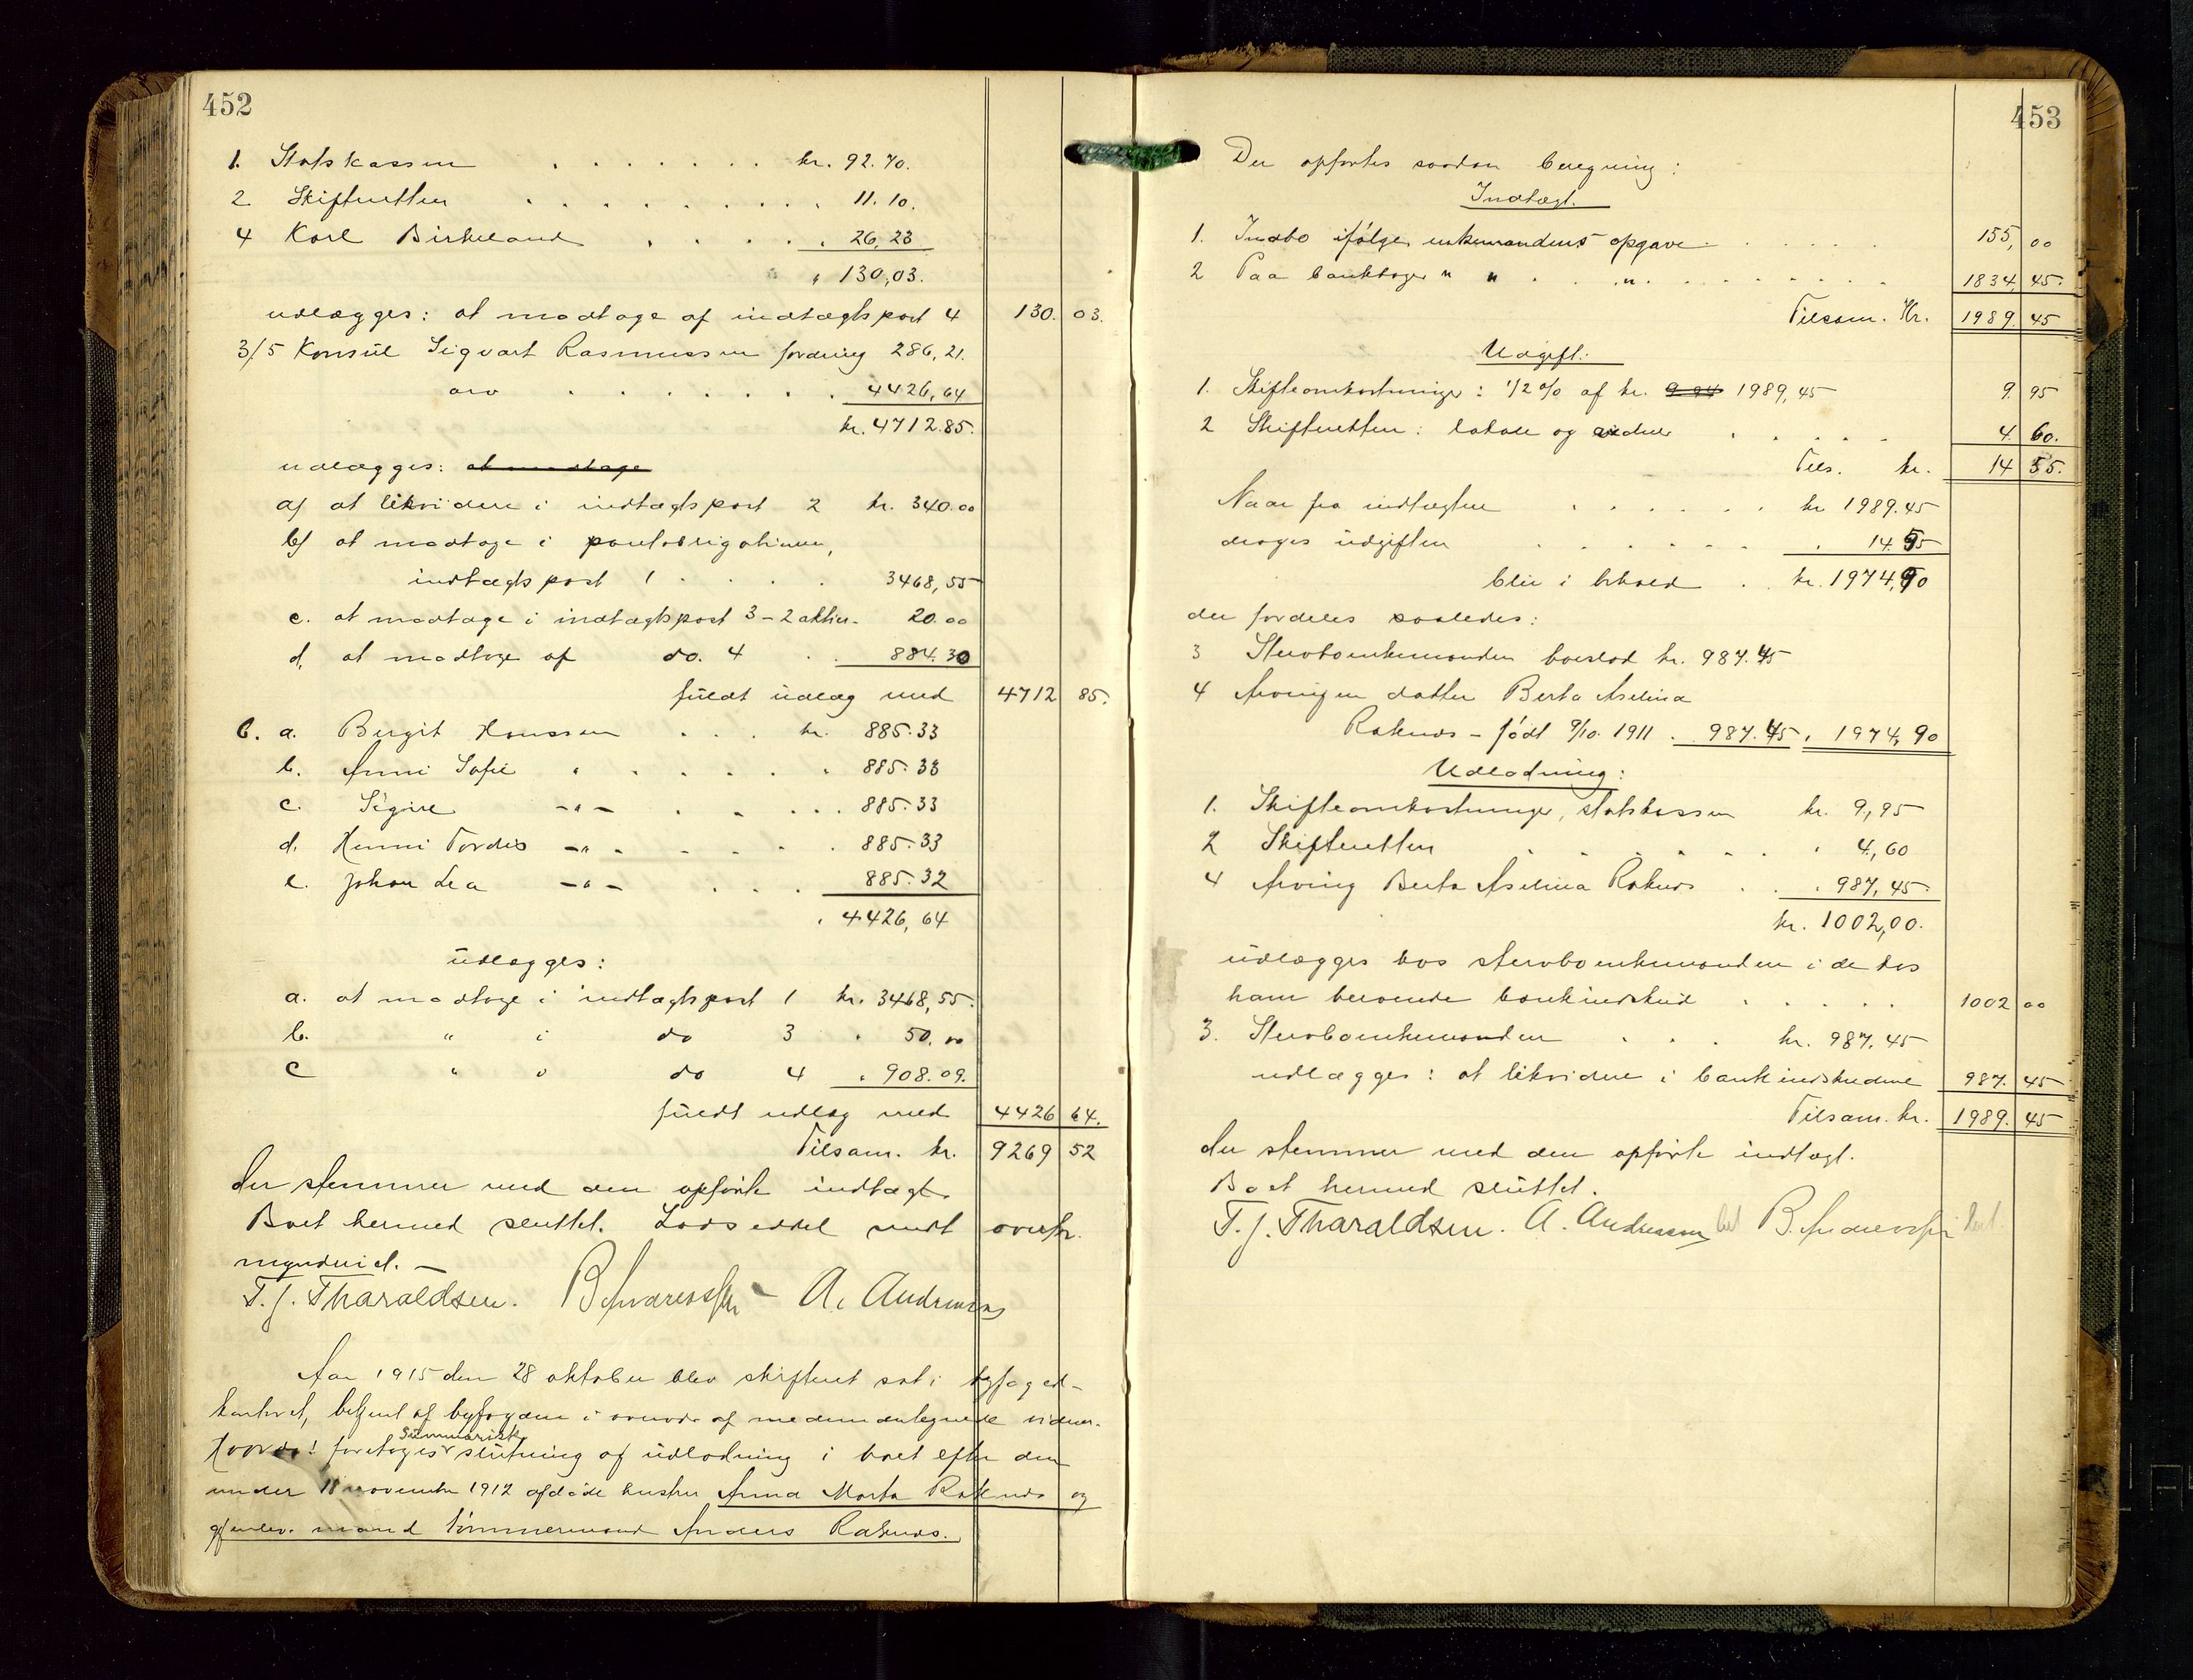 452
1. Statskassen . . . . . . . kr. 92.70.
2. Skifteretten . . . . . . . . . . 11.10.
4 Karl Birkeland . . . . . 26,23
" 130,03.
udlægges: at modtage af indtægtspost 4 130. 03.
3/5 Konsul Sigvart Rasmussen fordring 286,21.
arv . . . . . . . 4426,64
kr. 4712.85.
udlægges: at modtage
a) at likvidere i indtægtspost 2 kr. 340.00
b) at modtage i pantobligationen,
indtægtspost 1 . . . . 3468,55
c. at modtage i indtægtspost 3 - 2 aktier - 20.00
d. at modtage af do. 4 . . 884.30
fuldt udlæg med 4712 85.
6. a. Birgit Hanssen . . . kr. 885.33
b. Anni Sofie " . . . . . 885.33
c. Sigire -"- . . . . . 885.33
d. Henni Tordis -"- . . . . 885.33
e. Johan Lea -"- . . . 885.32
" 4426,64
udlægges:
a. at modtage i indtægtspost 1 kr. 3468,55.
b. " i do 3 " 50.00
c " " do 4 " 908.09.
fuldt udlæg med 4426 64.
Tilsam. kr. 9269 52
der stemmer med den opførte indtægt.
Boet hermed sluttet. Lodseddel sendt overfor-
mynderiet. —
T. J. Tharaldsen. B Andreassen A. Andreassen
Aar 1915 den 28 oktober blev skifteret sat i byfoged-
kontoret, betjent af byfogden i overvær af medundertegnede vidner.
Hvorda! foretoges summarisk slutning og udlodning i boet efter den
under 18 november 1912 afdøde hustru Anna Marta Raknes og
gjenlev. mand tømmermand Anders Raknes.
453
Der opførtes saadan beregning:
Indtægt.
1. Indbo ifølge enkemandens opgave . . . . . 155, 00
2 Paa bankbøger " " . . " . . . . . . . 1834, 45.
Tilsam. Kr. 1989. 45
Udgift:
1. Skifteomkostninger: 1/2 % af kr. 9.94 1989,45 9. 95
2 Skifteretten: lokale og vidner . . . . . 4. 60.
Tils. kr. 14 55.
Naar fra indtægten . . . . . . kr 1989.45
drages udgiften . . . . . . . 14.55
blir i behold . . kr. 1974,90
der fordeles saaledes:
3 Stervboenkemanden boeslod kr. 987.45
4 Arvingen datter Berta Aselina
Raknes - født 9/10. 1911 . 987.45 " 1974,90
Udlodning:
1. Skifteomkostninger, statskassen kr. 9,95
2 Skifteretten . . . . . . " 4,60
4 Arving Berta Aselina Raknes . . " 987,45.
kr. 1002,00.
udlægges hos stervboenkemanden i de hos
ham beroende bankindskud . . . . . 1002 00
3. Stervboenkemanden . . . kr. 987.45
udlægges: at likvidere i bankindskudene 987. 45
Tilsam. kr. 1989. 45
der stemmer med den opførte indtægt.
Boet hermed sluttet.
T. J. Tharaldsen. A. Andreassen B. Andreassen